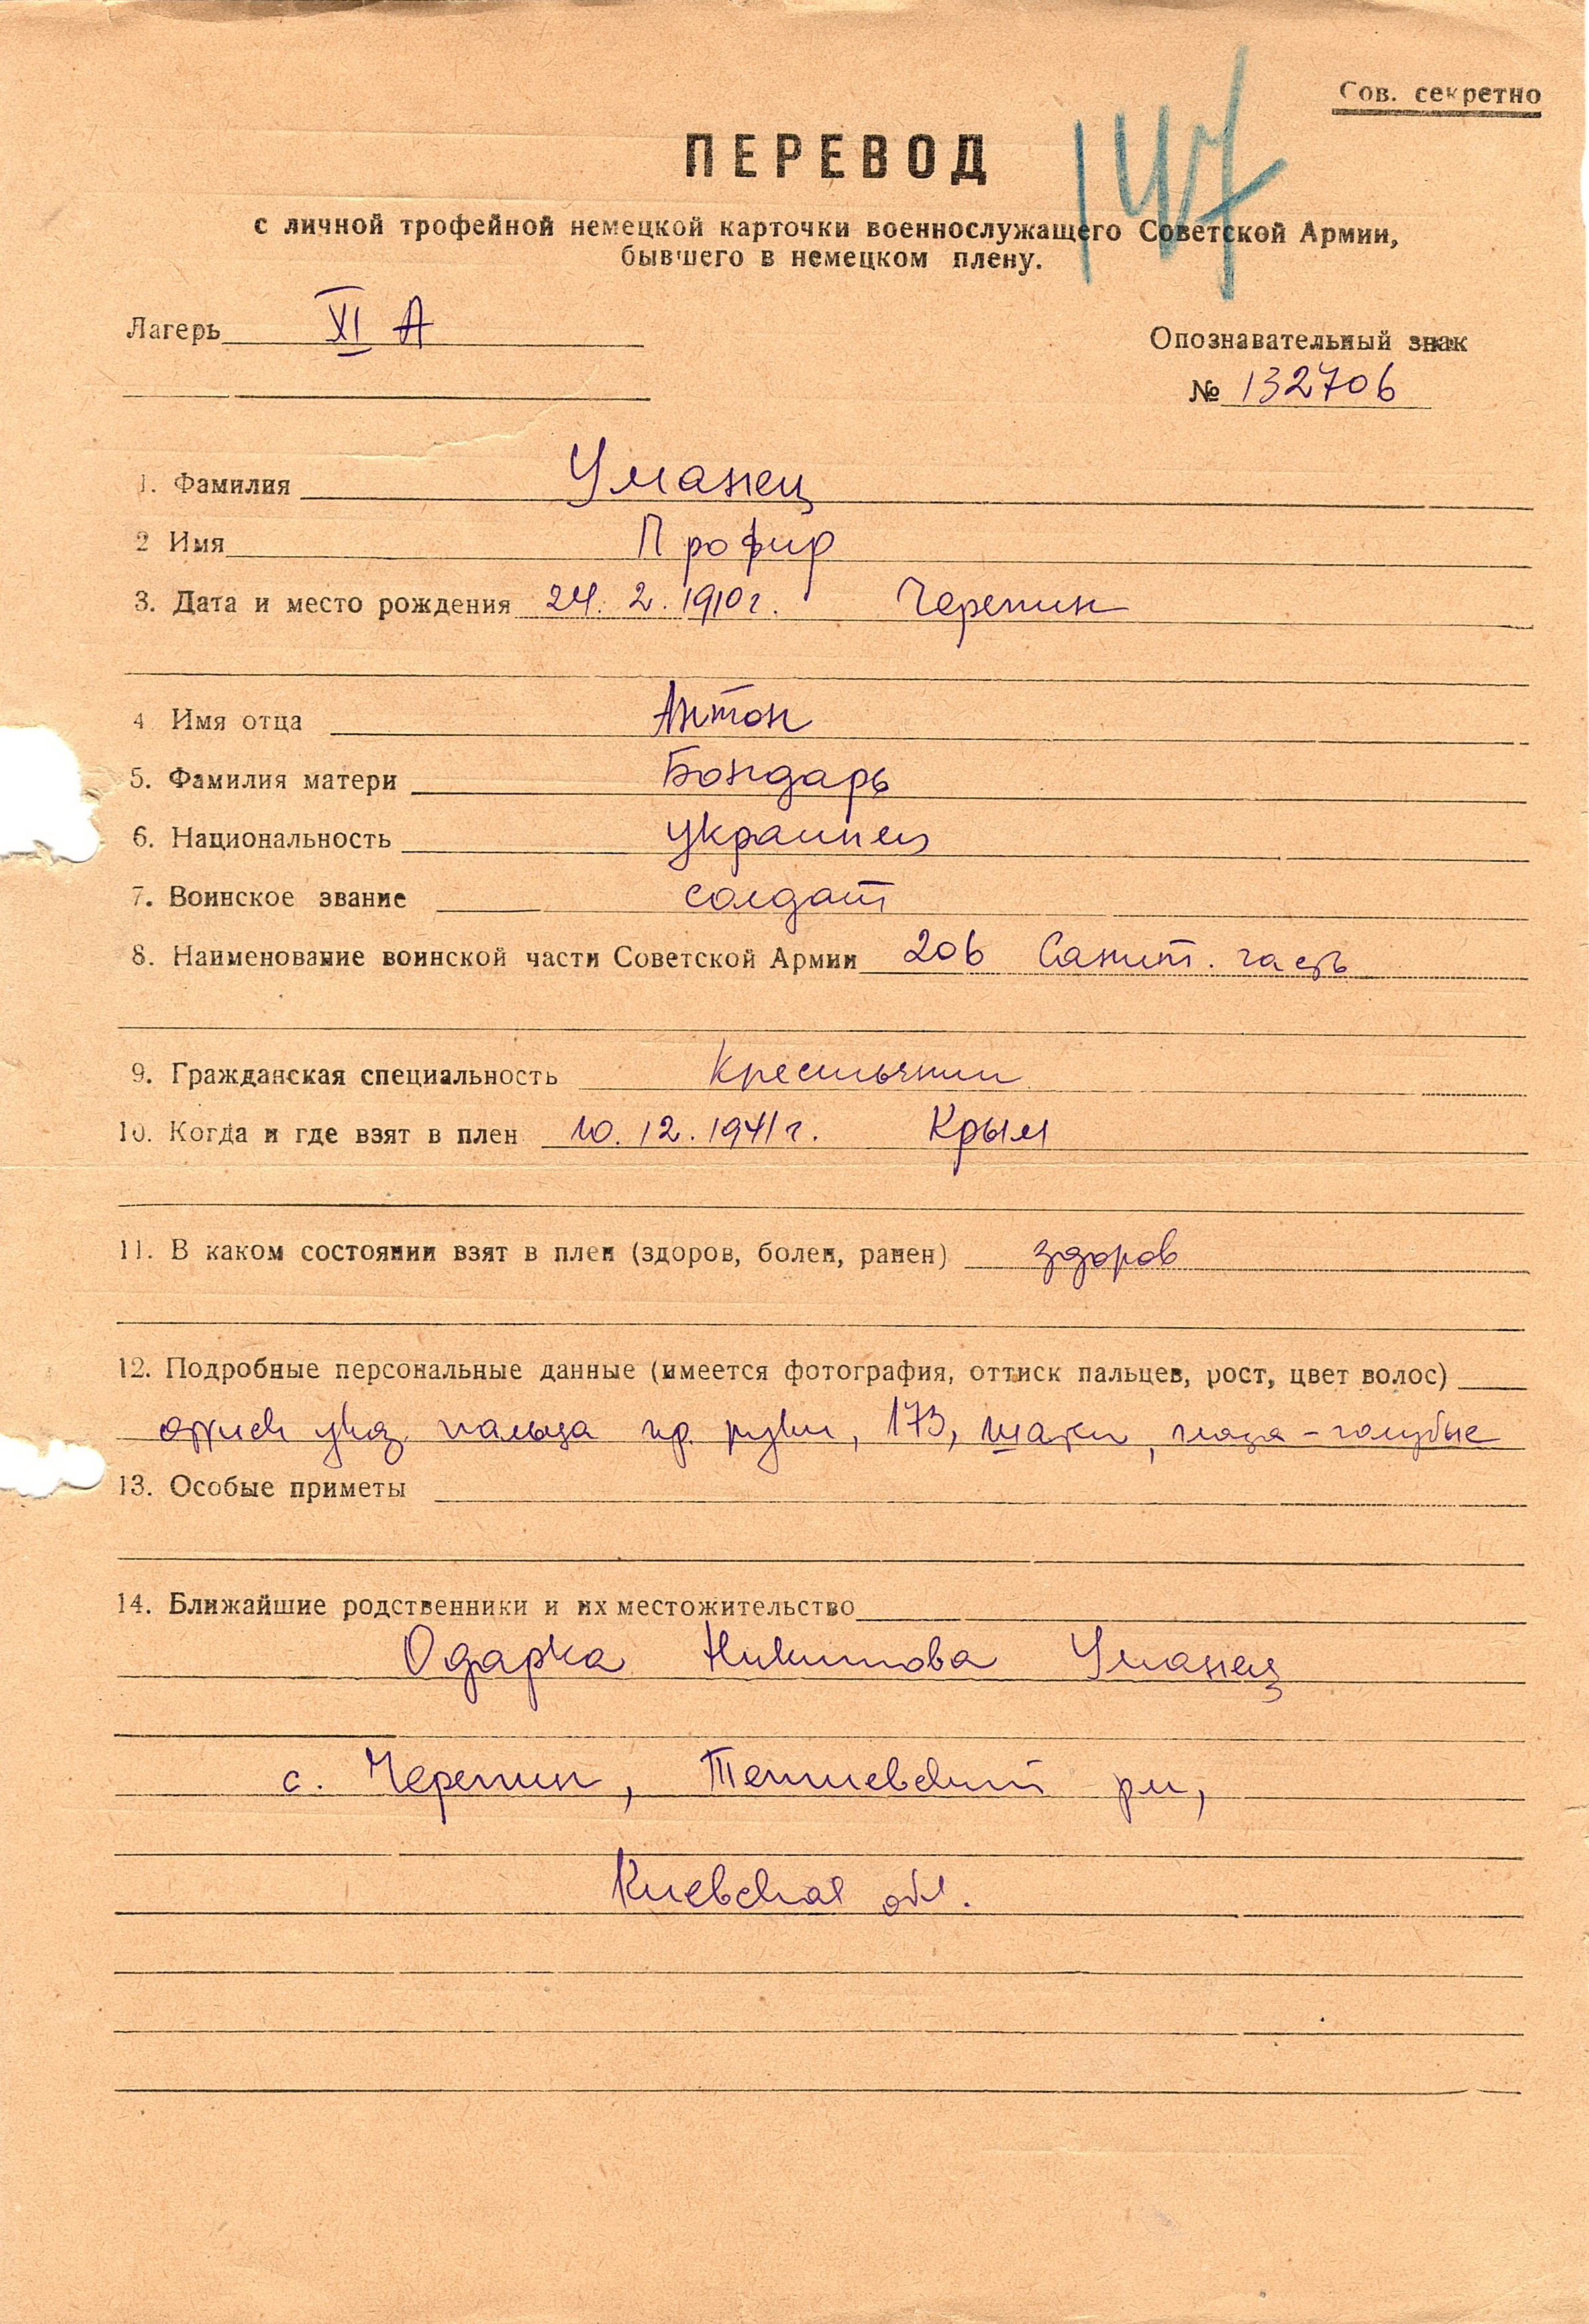 Сов. секретно
147
ПЕРЕВОД
с личной трофейной немецкой карточки военнослужащего Советской Армии,
бывшего в немецком плену.
Лагерь XI А
Опознавательный знак
№ 132706
1. Фамилия Уманец
2 Имя Профир
3. Дата и место рождения 24. 2. 1910 г. Черепин
4 Имя отца Антон
5. Фамилия матери Бондарь
6. Национальность украинец
7. Воинское звание солдат
8. Наименование воинской части Советской Армии 206 Санит. часть
9. Гражданская специальность крестьянин
10. Когда и где взят в плен 10. 12. 1941 г. Крым
11. В каком состоянии взят в плен (здоров, болен, ранен) здоров
12. Подробные персональные данные (имеется фотография, оттиск пальцев, рост, цвет волос)
оттиск указ. пальца пр. руки, 173, шатен, глаза - голубые
13. Особые приметы
14. Ближайшие родственники и их местожительство
Одарка Никитова Уманец
с. Черепин, рн,
Киевская обл.